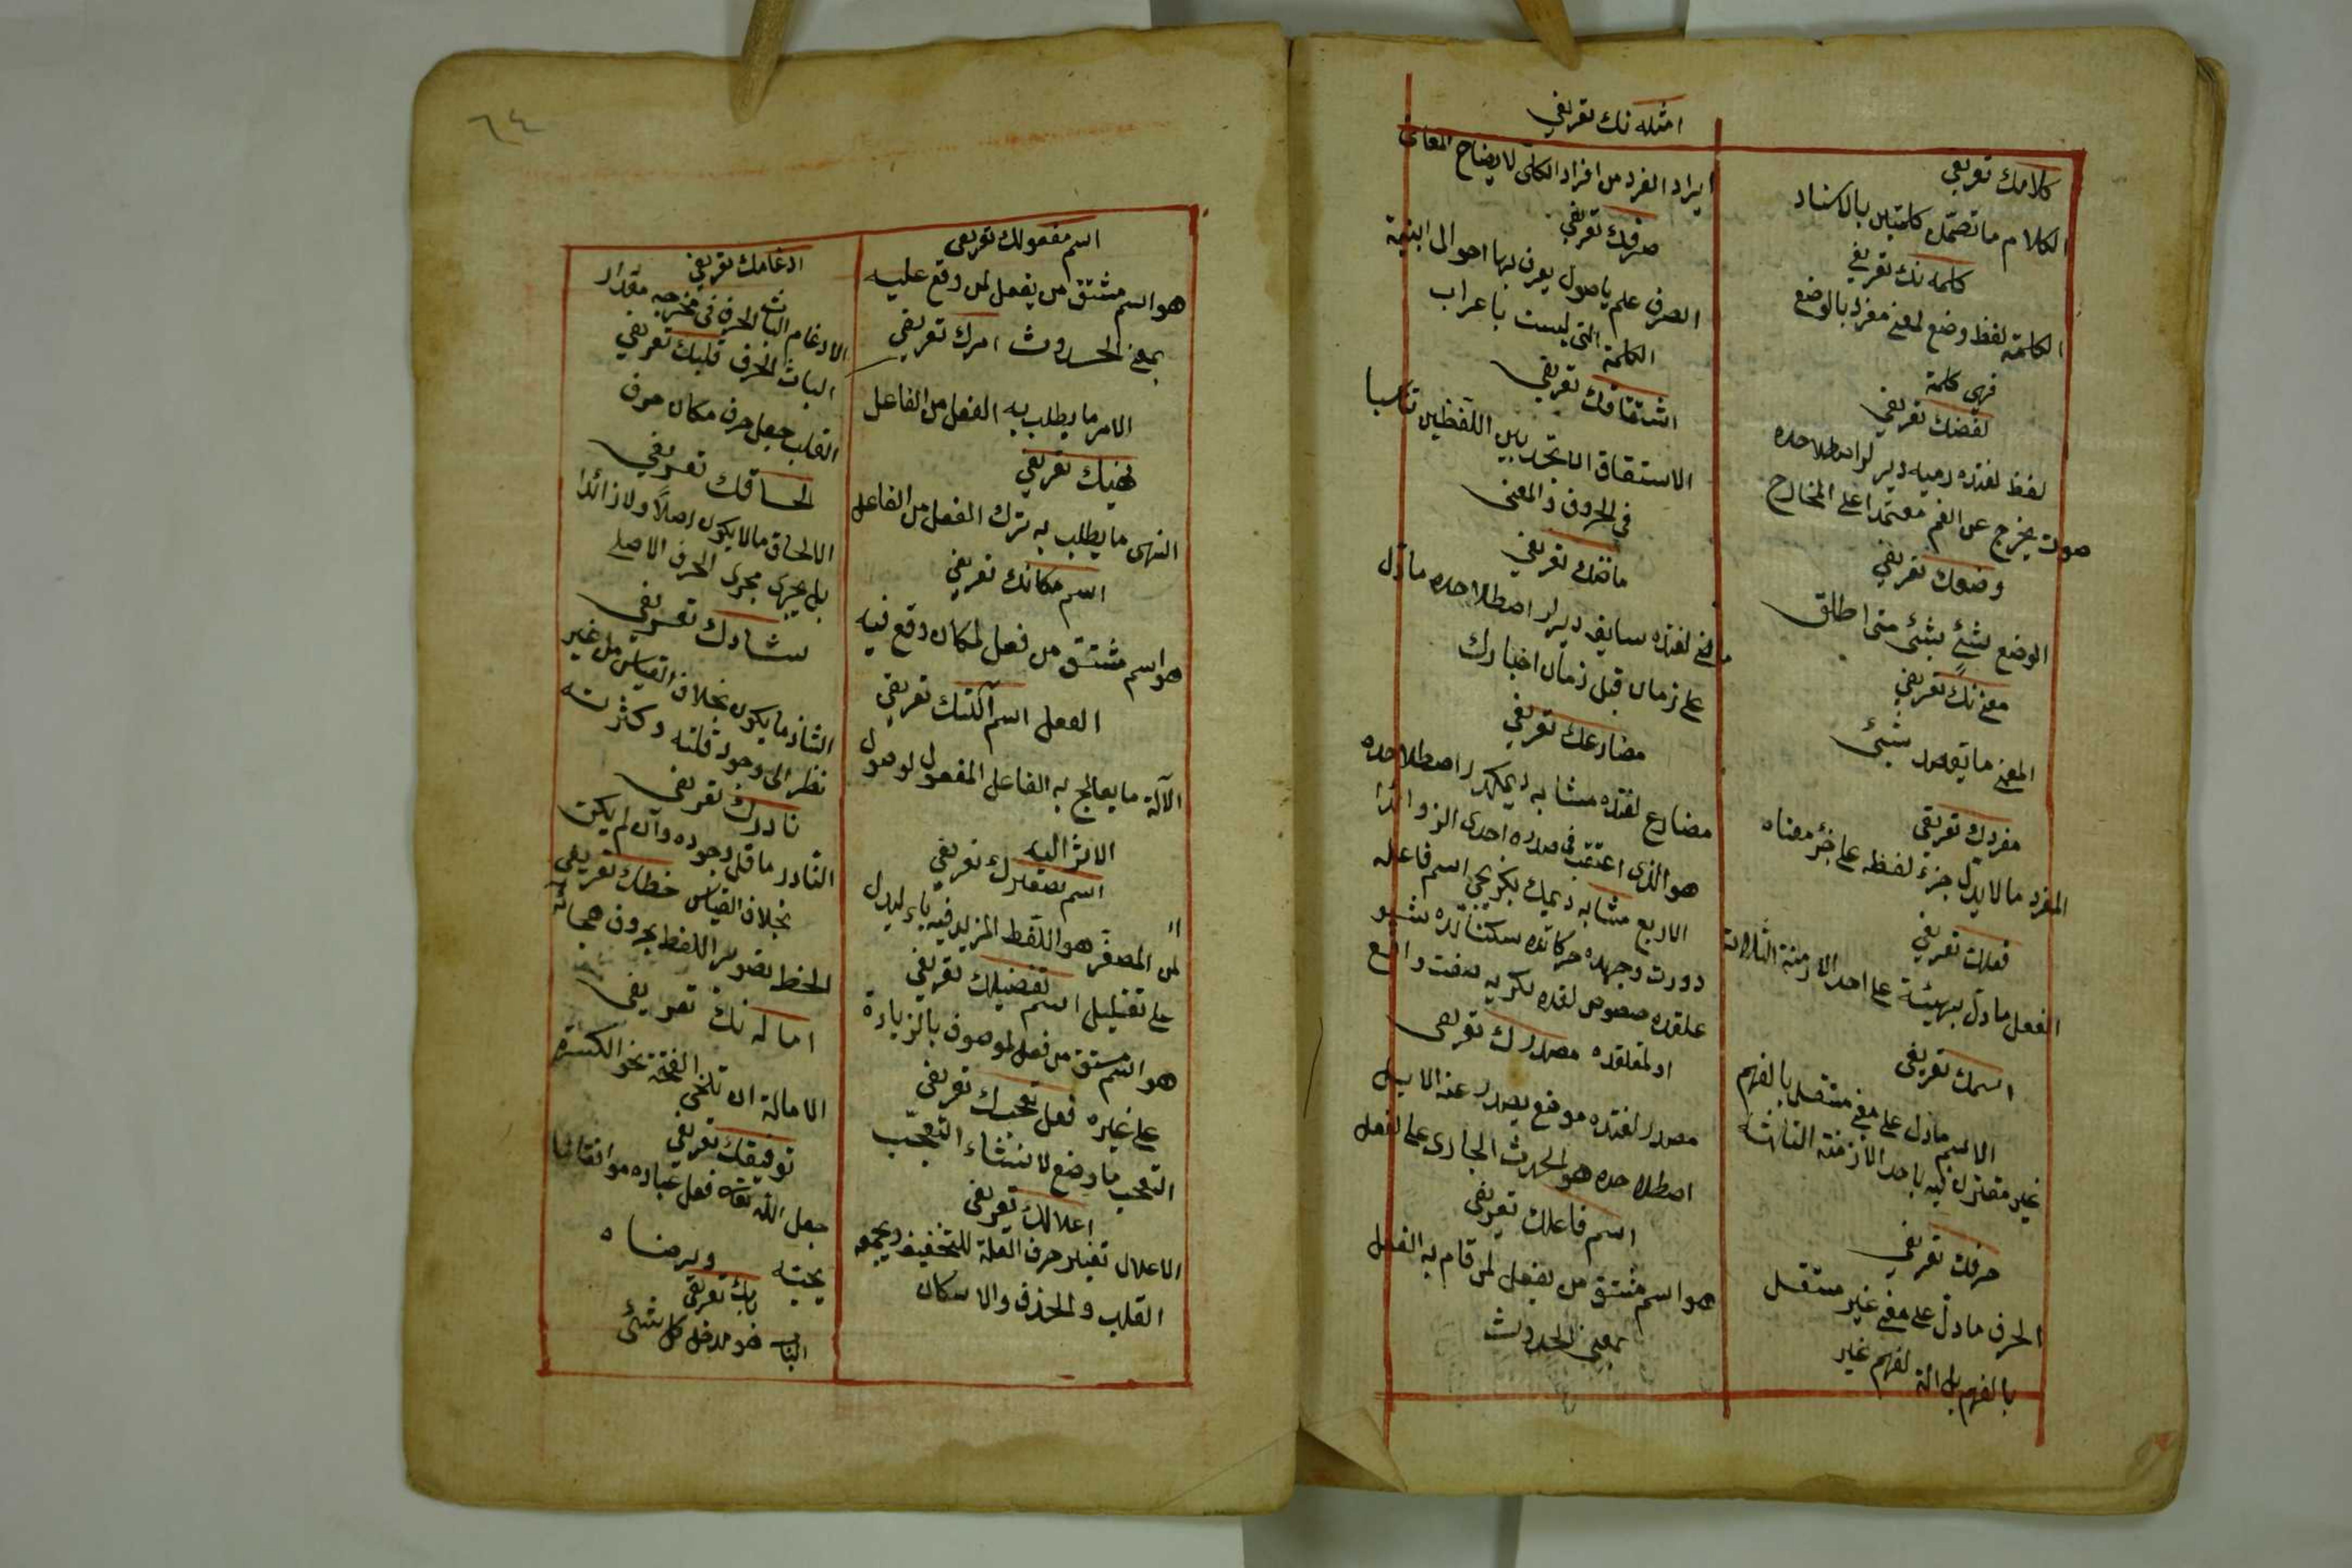 كلامك تعريفى
الكلام ما تضمن كلمتين بالاسناد
كلمه نك تعريفى
الكلمة لفظ وضع لمعنى مفرد بالوضع
فهى كلمة
لفضك تعريفى
لفظ لغتده رميه ديرلر اصطلاحده
صوت يخرج عن الفم معتمدا على المخارج
وضعك تعريفى
الوضع لشئ بشئ متى اطلق
معنى نك تعريفى
المعنى ما يقصد بشئ
مفردك تعريفى
المفرد مالا يدل جزء لفظه على جزء معناه
فعلك تعريفى
الفعل ما دل بهيئة على احد الازمنة الثلاثة
اسمك تعريفى
الاسم ما دل على معنى مستقل بالفهم
غير مقترن فيه باحد الازمنة الثلاثة
حرفك تعريفى
الحرف ما دل على معنى غير مستقل
بالفهم بل الة لفهم غير
امثله نك تعريفى
ايراد الفرد من افراد الكلى لايضاح المعانى
صرفك تعريفى
الصرف علم باصول يعرف بها احوال ابنية
الكلمة التى ليست باعراب
اشتقاقك تعريفى
الاشتقاق ان تجد بين اللفظين تناسبا
فى الحروف والمعنى
ماضنك تعريفى
ماضى لغتده سابق ديرلر اصطلاحده ما دل
على زمان قبل زمان اخبارك
مضارعك تعريفى
مضارع لغتده مشابه ديمكدر اصطلاحده
هو الذى اعتقب فى صدره احدى الزوائد
الاربع مشابه ديمك بكزيجى اسم فاعله
دورت وجهده حركاتده سكناتده شيو
علقده خصوص لغده نكريه صفت واقع
اولمقلقده مصدرك تعريفى
مصدر لغتده موضع يصدر عنه الابل
اصطلاحده هو الحدث الجارى على الفعل
اسم فاعلك تعريفى
هو اسم مشتق من يفعل لمن قام به الفعل
بمعنى الحدوث
٦٤
اسم مفعولك تعريفى
هو اسم مشتق من يفعل لمن وقع عليه
بمعنى الحدوث امرك تعريفى
الامر ما يطلب به الفعل من الفاعل
نهيك تعريفى
النهى ما يطلب به ترك الفعل من الفاعل
اسم مكانك تعريفى
هو اسم مشتق من فعل لمكان وقع فيه
الفعل اسم آلتك تعريفى
الآلة ما يعالج به الفاعل المفعول لوصول
الاثر اليه
اسم تصغيرك تعريفى
المصغر هو اللفظ المزيد فيه ياء ليدل
على تقليل اسم تفضيلك تعريفى
هو اسم مشتق من فعل لموصوف بالزيادة
على غيره فعل تعجبك تعريفى
التعجب ما وضع لانشاء التعجب
اعلالك تعريفى
الاعلال تغيير حرف العلة للتخفيف ويجمعه
القلب والحذف والاسكان
ادغامك تعريفى
الادغام الباث الحرف فى مخرجه مقدار
الباث الحرف قلبك تعريفى
القلب جعل حرف مكان حرف
الحاقك تعريفى
الالحاق مالا يكون اصلاً ولا زائدا
بل يجرى مجرى الحرف الاصلى
شادك تعريفى
الشاذ ما يكون بخلاف القياس من غير
نظر الى وجود قلته وكثرته
نادرك تعريفى
النادر ما قل وجوده وان لم يكن
بخلاف القياس خطك تعريفى
الخط تصوير اللفظ بحروف هجائه
اماله نك تعريفى
الامالة ان تلخى الفتحة نحو الكسرة
توفيقك تعريفى
جعل الله تعالى فعل عباده موافقا لما
يحبه ويرضاه
بابك تعريفى
الباب هو مدخل كل شئ